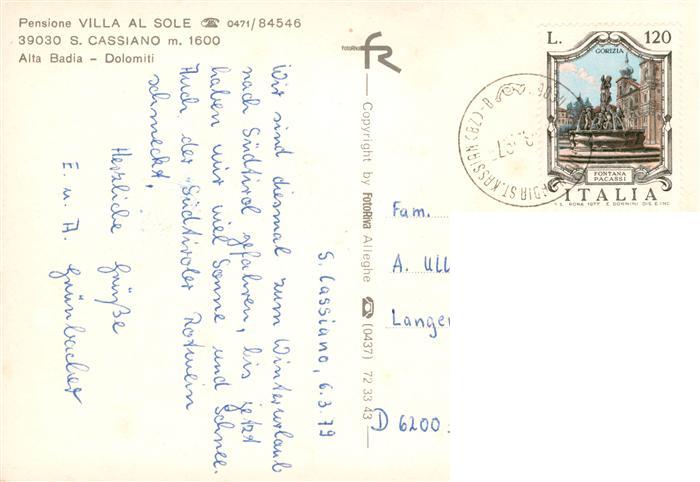 Pensione VILLA AL SOLE ☎ 0471/84546
39030 S. CASSIANO m. 1600
Alta Badia - Dolomiti
S. Cassiano, 6.3.79
Wir sind diesmal zum Winterurlaub
nach Südtirol gefahren, bis jetzt
haben wir viel Sonne und Schnee.
Auch der Südtiroler Rotwein
schmeckt.
Herzliche Grüße
E. u. A. Grünbacher
fotoRiva
Copyright by FotoRiva Alleghe ☎ (0437) 72 33 43
L. 120
GORIZIA
FONTANA
PACASSI
ITALIA
Fam.
A. Ull
Langen
D 6200